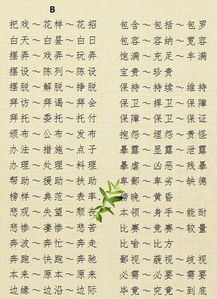 B
把戏～花样～花招
白天～白昼～白日
摆弄～戏弄～玩弄
摆设～陈列～陈设
摆脱～解脱～挣脱
拜访～拜谒～拜会
拜托～委托～托付
颁布～公布～发布
办法～措施～点子
办理～处理～料理
帮助～援助～扶助
榜样～典范～表率
悲观～失望～颓丧
悲惨～凄惨～悲苦
奔波～奔忙～奔走
奔跑～奔驰～
本来～原本～原来
边缘～边沿～边际
包含～包括～包罗
包容～容纳～宽容
饱满～充足～丰满
宝贵～珍贵
保持～持续～维持
保卫～捍卫～保护
～保证
抱怨～埋怨～责怪
暴露～显露～泄露
暴虐～凶恶～残暴
卑鄙～卑劣～缺德
傍晚～黄昏
本领～身手～能耐
比赛～竞赛～较量
比喻～比方
鄙视～藐视～歧视
必需～必要～需要
毕竟～究竟～到底